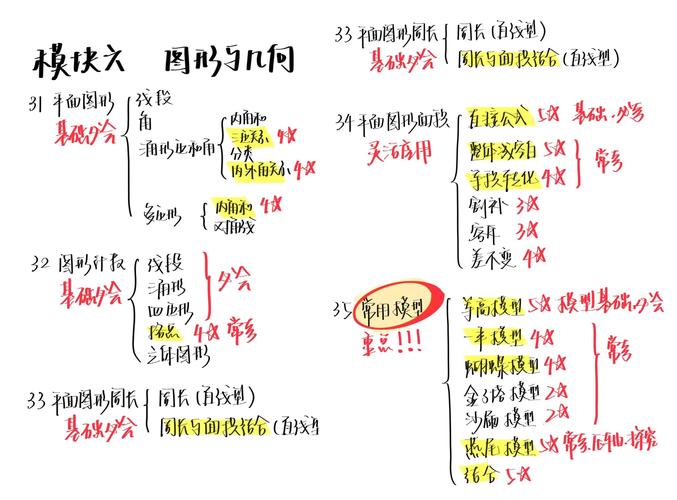 模块六 图形与几何
31 平面图形
基础必会
线段
角
三角形边和角
内角和
三边关系 4☆
分类
内外角关系 4☆
多边形
内角和 4☆
对角线
32 图形计数
基础必会
线段
三角形
四边形
格点 4☆ 常考
立体图形
必会
33 平面图形周长
基础必会
周长(直线型)
周长与面积结合(直线型
33 平面图形周长
基础必会
周长(直线型)
周长与面积结合(直线型)
34 平面图形面积
灵活应用
直接公式 5☆ 基础、必考
整体减空白 5☆
等积变化 4☆
常考
割补 3☆
容斥 3☆
差不变 4☆
35 常用模型
重点!!!
等高模型 5☆ 模型基础必会
一半模型 4☆
蝴蝶模型 4☆
金字塔模型 2☆
沙漏模型 2☆
常考
燕尾模型 5☆ 常考、压轴、探究
结合 5☆